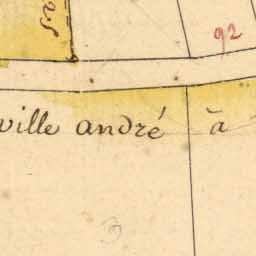 92
ville andré à